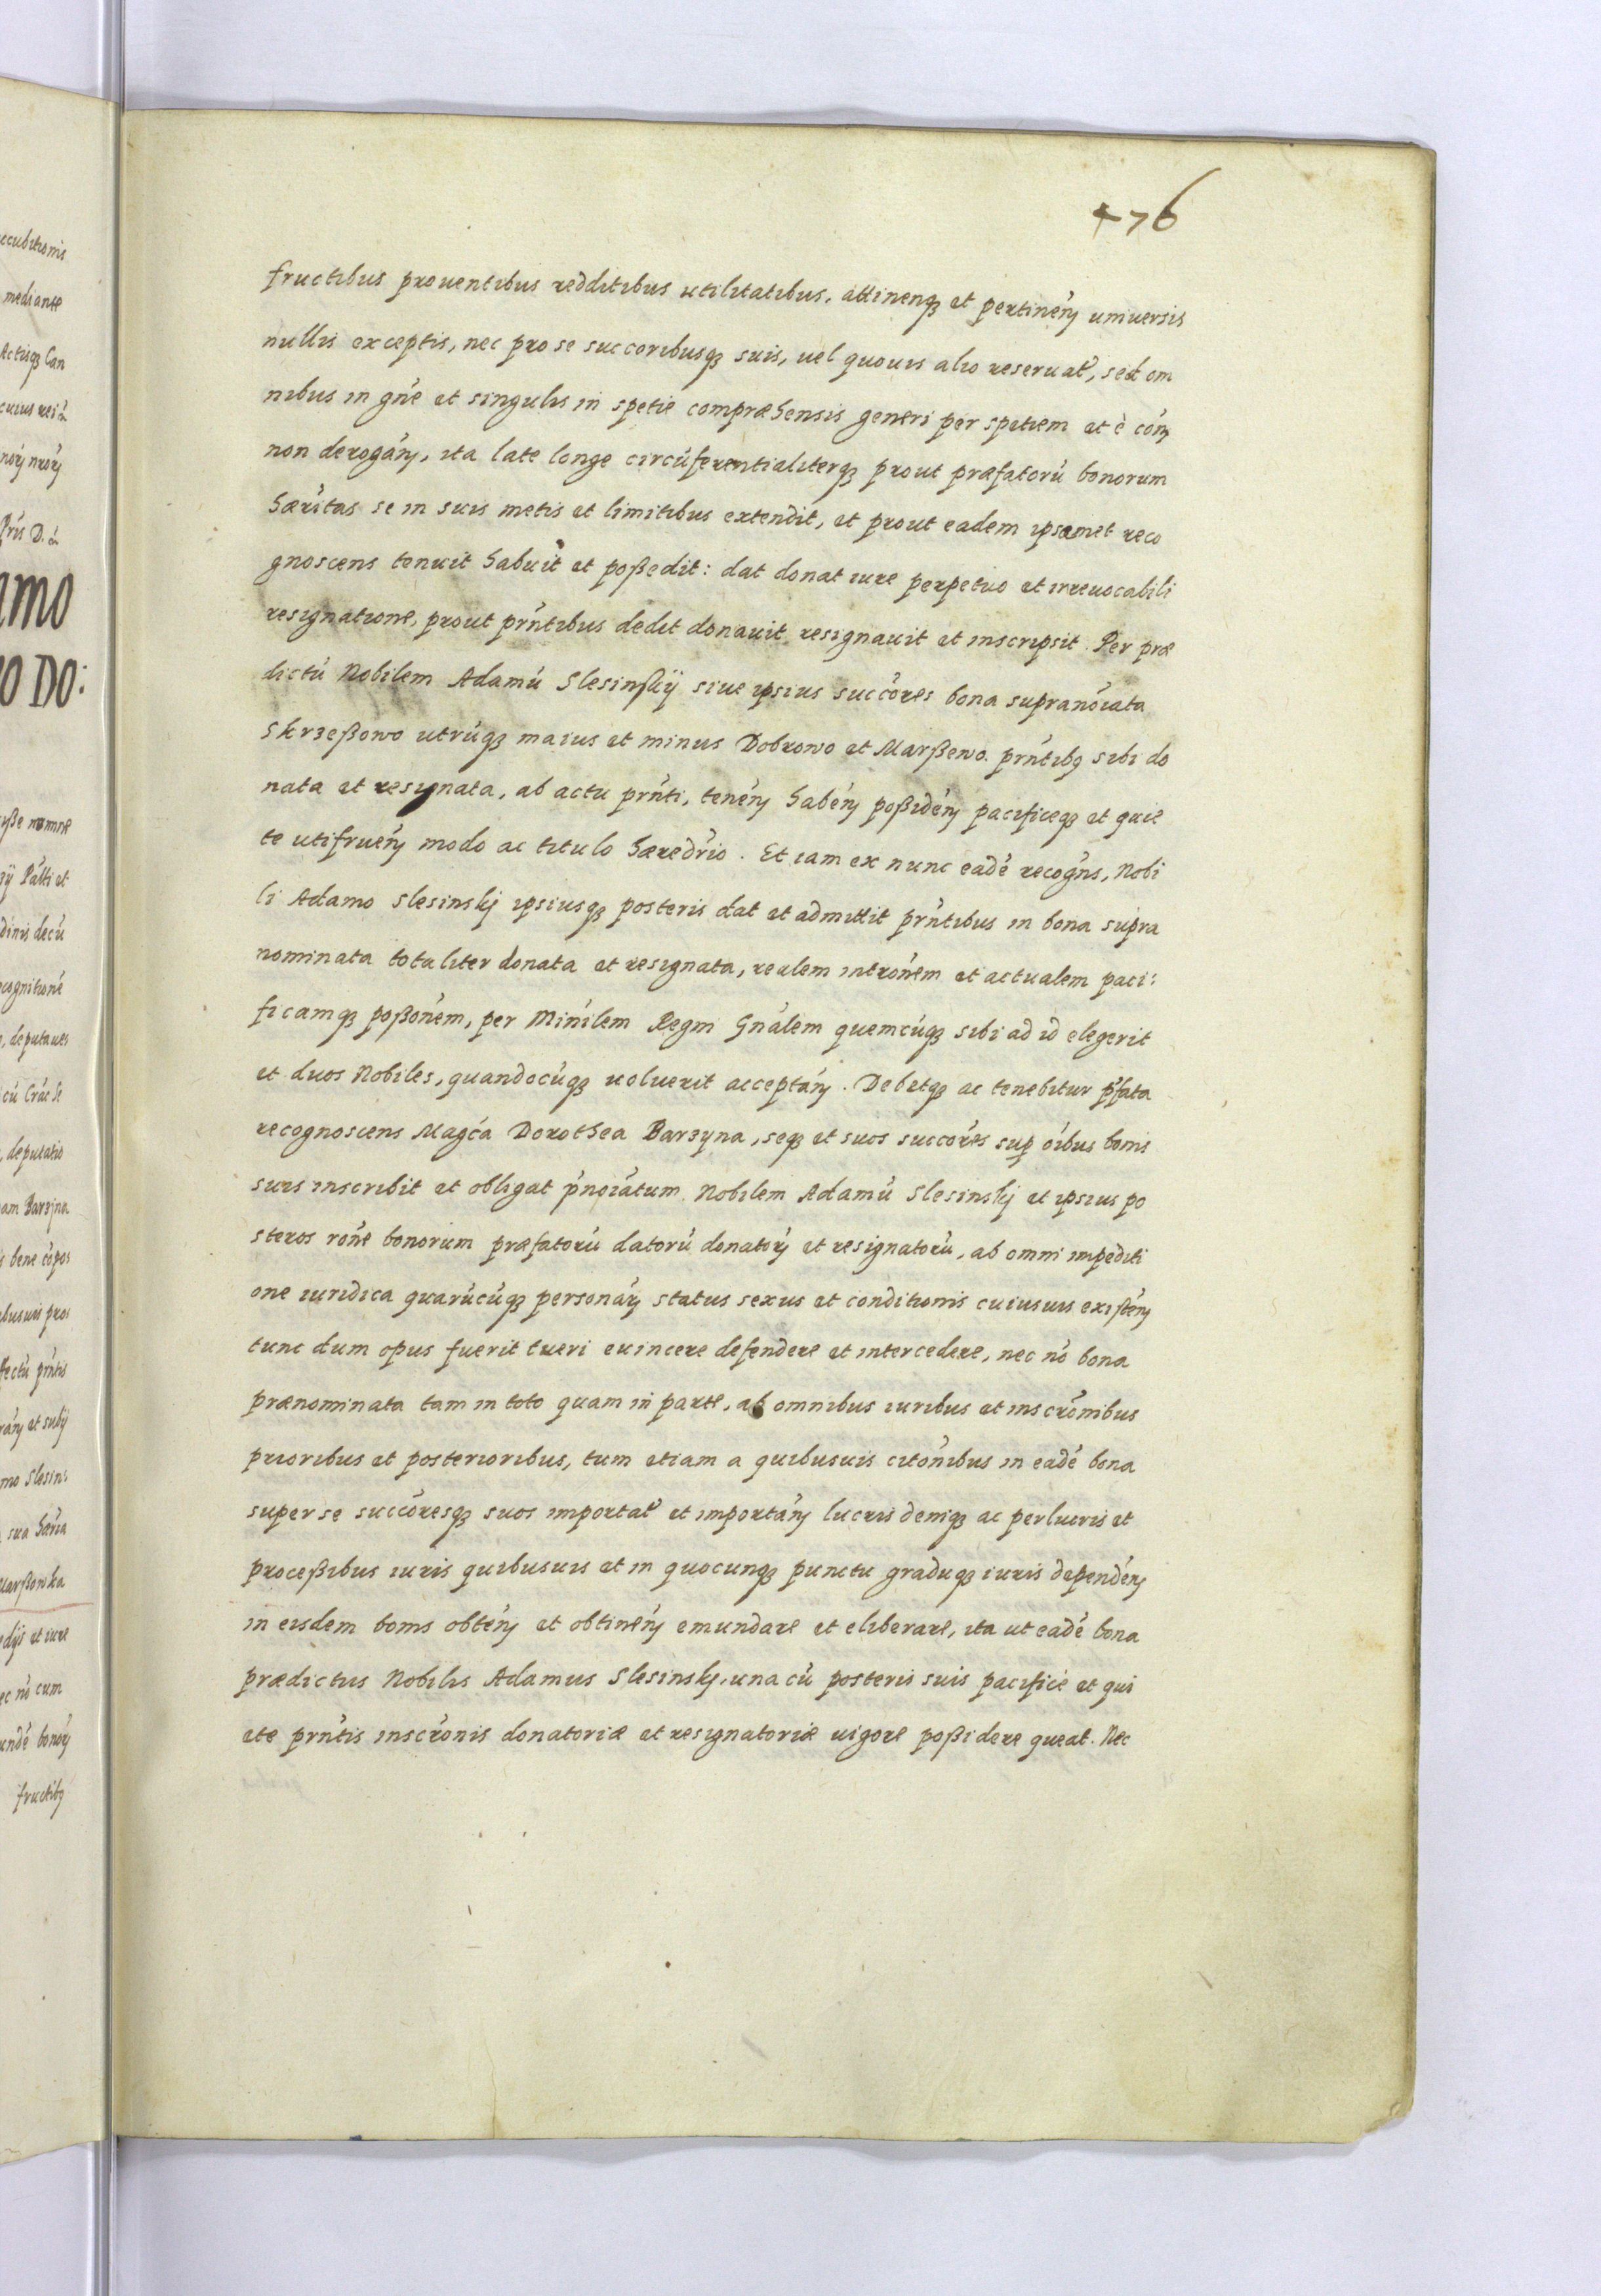 476
fructibus prouentibus redditibus utilitatibus, attinenqꝫ et pertinen̄ uniuersis
nullis exceptis, nec pro se succoribusqꝫ suis, uel quouis alio reseruat̄, sed om
nibus in gn̄e et singulis in spetie compræhensis generi per spetiem et è cōn
non derogān, ita late longe circūferentialiterqꝫ prout præfatorū bonorum
hærītas se in suis metis et limitibus extendit, et prout eadem ipsamet reco
gnoscens tenuit habuit et poßedit: dat donat iure perpetuo et irreuocabili
resignatione, prout prn̄tibus dedit donauit resignauit et inscripsit. Per præ
dictū Nobilem Adamū Slesinskÿ siue ipsius succōres bona supranōiata
Skrzeßowo utrūqꝫ maius et minus Dobrowo et Marßewo. prn̄tibꝫ sibi do
nata et resignata, ab actu prn̄ti, tenēn habēn poßidēn pacificeqꝫ et quie
te utifruēn modo ac titulo hæredr̄io. Et iam ex nunc eadē recogn̄s, Nobi
li Adamo Slesinskj ipsiusqꝫ posteris dat et admittit prn̄tibus in bona supra
nominata totaliter donata et resignata, realem intrōnem et actualem paci:
ficamqꝫ poßōnem, per Minīlem Regni Gnālem quemcūqꝫ sibi ad id elegerit
et duos Nobiles, quandocūqꝫ uoluerit acceptān. Debetqꝫ ac tenebitur p̄fata
recognoscens Magc̄a Dorothea Barzyna, seqꝫ et suos succōres sup ōibus bonis
suis inscribit et obligat p̄nōiatum Nobilem Adamū Slesinskj et ipsius po
steros rōne bonorum præfatorū datorū donatorꝝ et resignatorū, ab omni impediti
one iuridica quarūcūqꝫ personarꝝ status sexus et conditionis cuiusuis existēn
tunc dum opus fuerit tueri euincere defendere et intercedere, nec nō bona
prænominata tam in toto quam in parte, ab omnibus iuribus et inscrōnibus
prioribus et posterioribus, tum etiam a quibusuis citōnibus in eadē bona
super se succōresqꝫ suos importat̄ et importān lucris deniqꝫ ac perlucris et
proceßibus iuris quibusuis et in quocunqꝫ punctu graduqꝫ iuris dependēn
in eisdem bonis obtēn et obtinēn emundare et eliberare, ita ut eadē bona
prædictus Nobilis Adamus Slesinskj, una cū posteris suis pacificè et qui
ete prn̄tis inscrōnis donatoriæ et resignatoriæ uigore poßidere queat. Nec